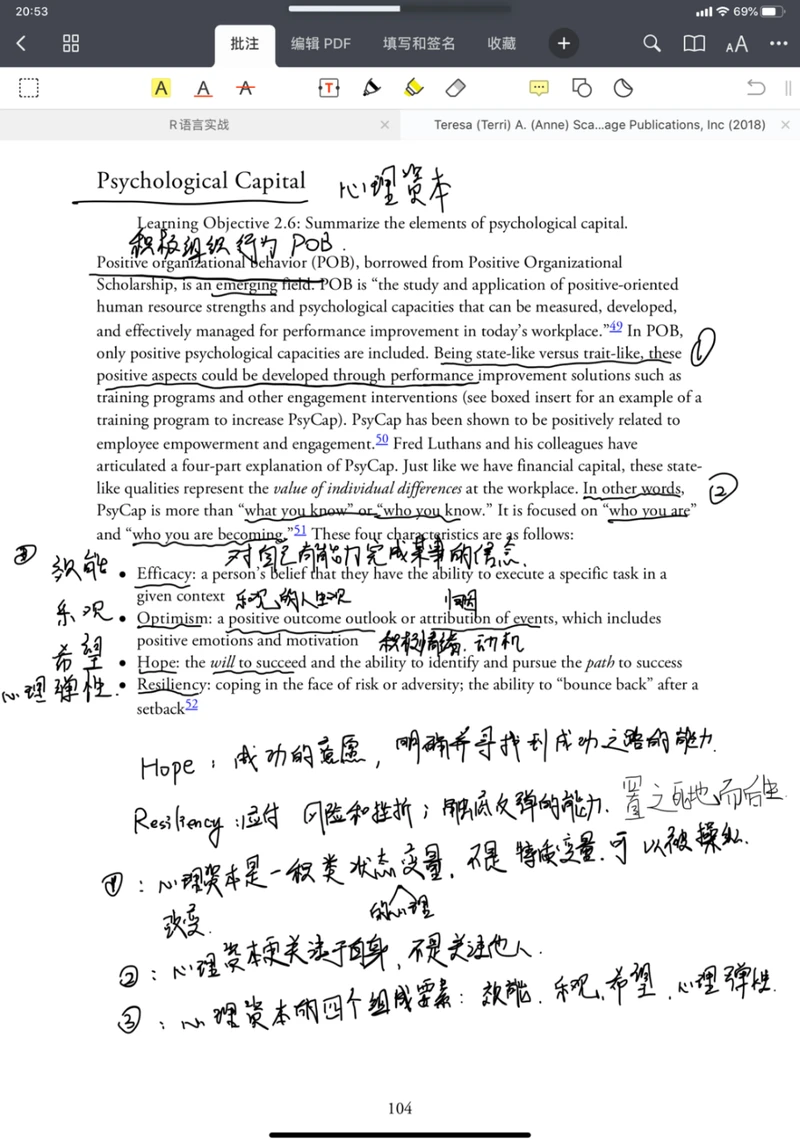 20:53
69%
批注 编辑 PDF 填写和签名 收藏
AA
A A A T
R语言实战 Teresa (Terri) A. (Anne) Sca...age Publications, Inc (2018)
Psychological Capital 心理资本
Learning Objective 2.6: Summarize the elements of psychological capital.
积极组织行为 POB.
Positive organizational behavior (POB), borrowed from Positive Organizational
Scholarship, is an emerging field. POB is “the study and application of positive-oriented
human resource strengths and psychological capacities that can be measured, developed,
and effectively managed for performance improvement in today’s workplace.”49 In POB,
only positive psychological capacities are included. Being state-like versus trait-like, these ①
positive aspects could be developed through performance improvement solutions such as
training programs and other engagement interventions (see boxed insert for an example of a
training program to increase PsyCap). PsyCap has been shown to be positively related to
employee empowerment and engagement.50 Fred Luthans and his colleagues have
articulated a four-part explanation of PsyCap. Just like we have financial capital, these state-
like qualities represent the value of individual differences at the workplace. In other words, ②
PsyCap is more than “what you know” or “who you know.” It is focused on “who you are”
and “who you are becoming.”51 These four characteristics are as follows:
③ 效能 对自己有能力完成某事的信念.
• Efficacy: a person’s belief that they have the ability to execute a specific task in a
given context 乐观的人生观 归因
乐观 • Optimism: a positive outcome outlook or attribution of events, which includes
positive emotions and motivation 积极情绪.动机
希望 • Hope: the will to succeed and the ability to identify and pursue the path to success
心理弹性. • Resiliency: coping in the face of risk or adversity; the ability to “bounce back” after a
setback52
Hope: 成功的意愿, 明确并寻找到成功之路的能力.
Resiliency:应付 风险和挫折; 触底反弹的能力. 置之死地而后生.
①: 心理资本是一种类状态变量, 不是特质变量.可以被操纵.
的心理
改变.
②: 心理资本更关注于自身, 不是关注他人.
③: 心理资本的四个组成要素: 效能. 乐观.希望.心理弹性.
104